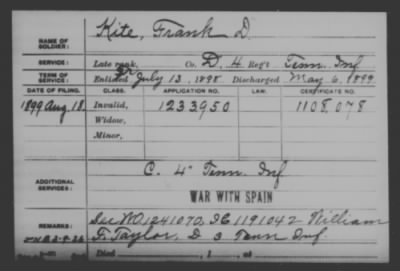 NAME OF SOLDIER: Kite, Frank D.
SERVICE: Late rank, Co. D, 4 Reg't Tenn. Inf
TERM OF SERVICE: Enlisted July 13, 1898 Discharged May 6, 1899
DATE OF FILING. CLASS. APPLICATION NO. LAW. CERTIFICATE NO.
1899 Aug. 18. Invalid, 1233950 1108,078
Widow,
Minor,
ADDITIONAL SERVICES: C. 4" Tenn. Inf
WAR WITH SPAIN
REMARKS: See WO 1241070, IC 1191042 William
F. Taylor, D 3 Tenn Inf.
Died , 1 , at